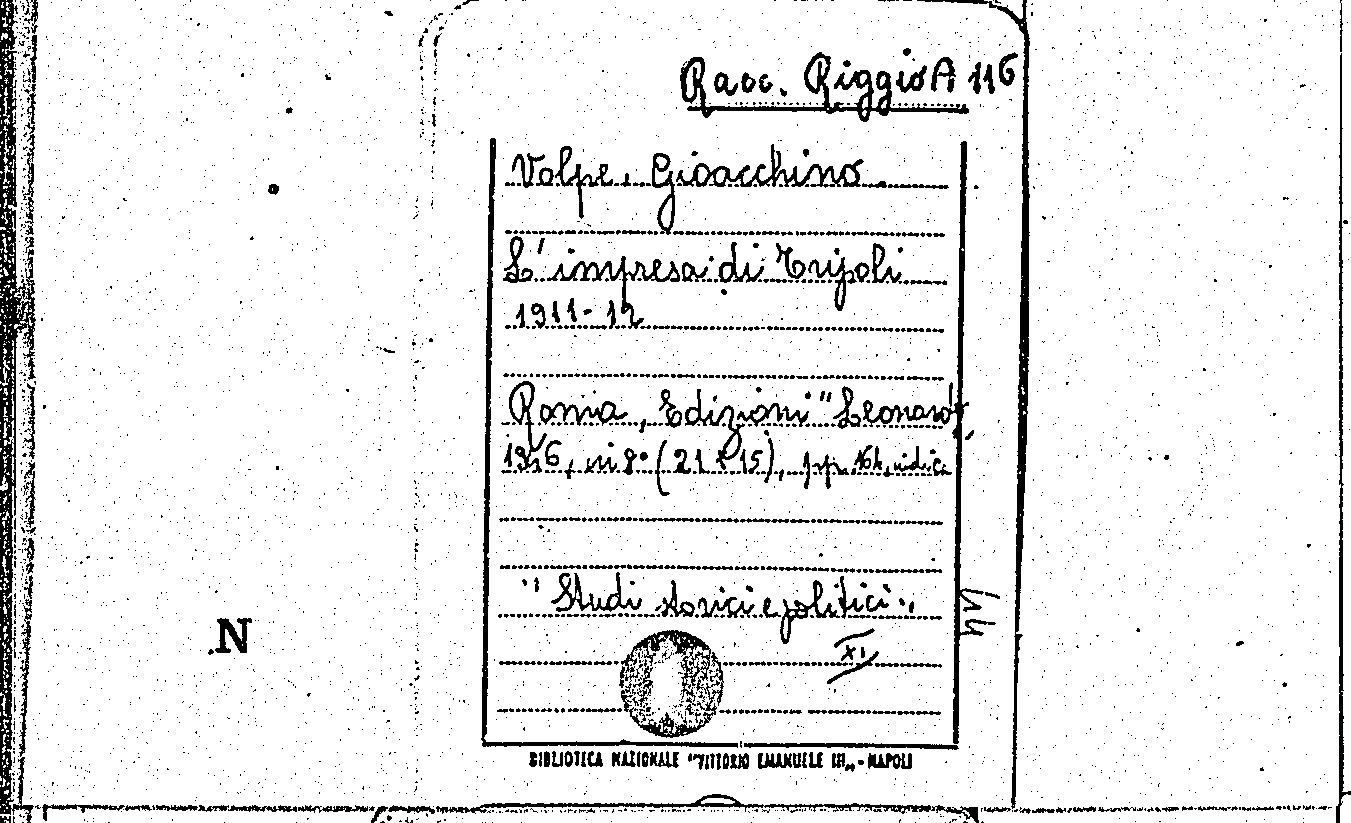 Racc. Riggio A 116
Volpe, Gioacchino.
L'impresa di Tripoli
1911-12
Roma, Edizioni "Leonardo",
1946, in 8° (21 x 15), pp. 164, indici
"Studi storici e politici"
XI
N
BIBLIOTECA NAZIONALE "VITTORIO EMANUELE III„ - NAPOLI